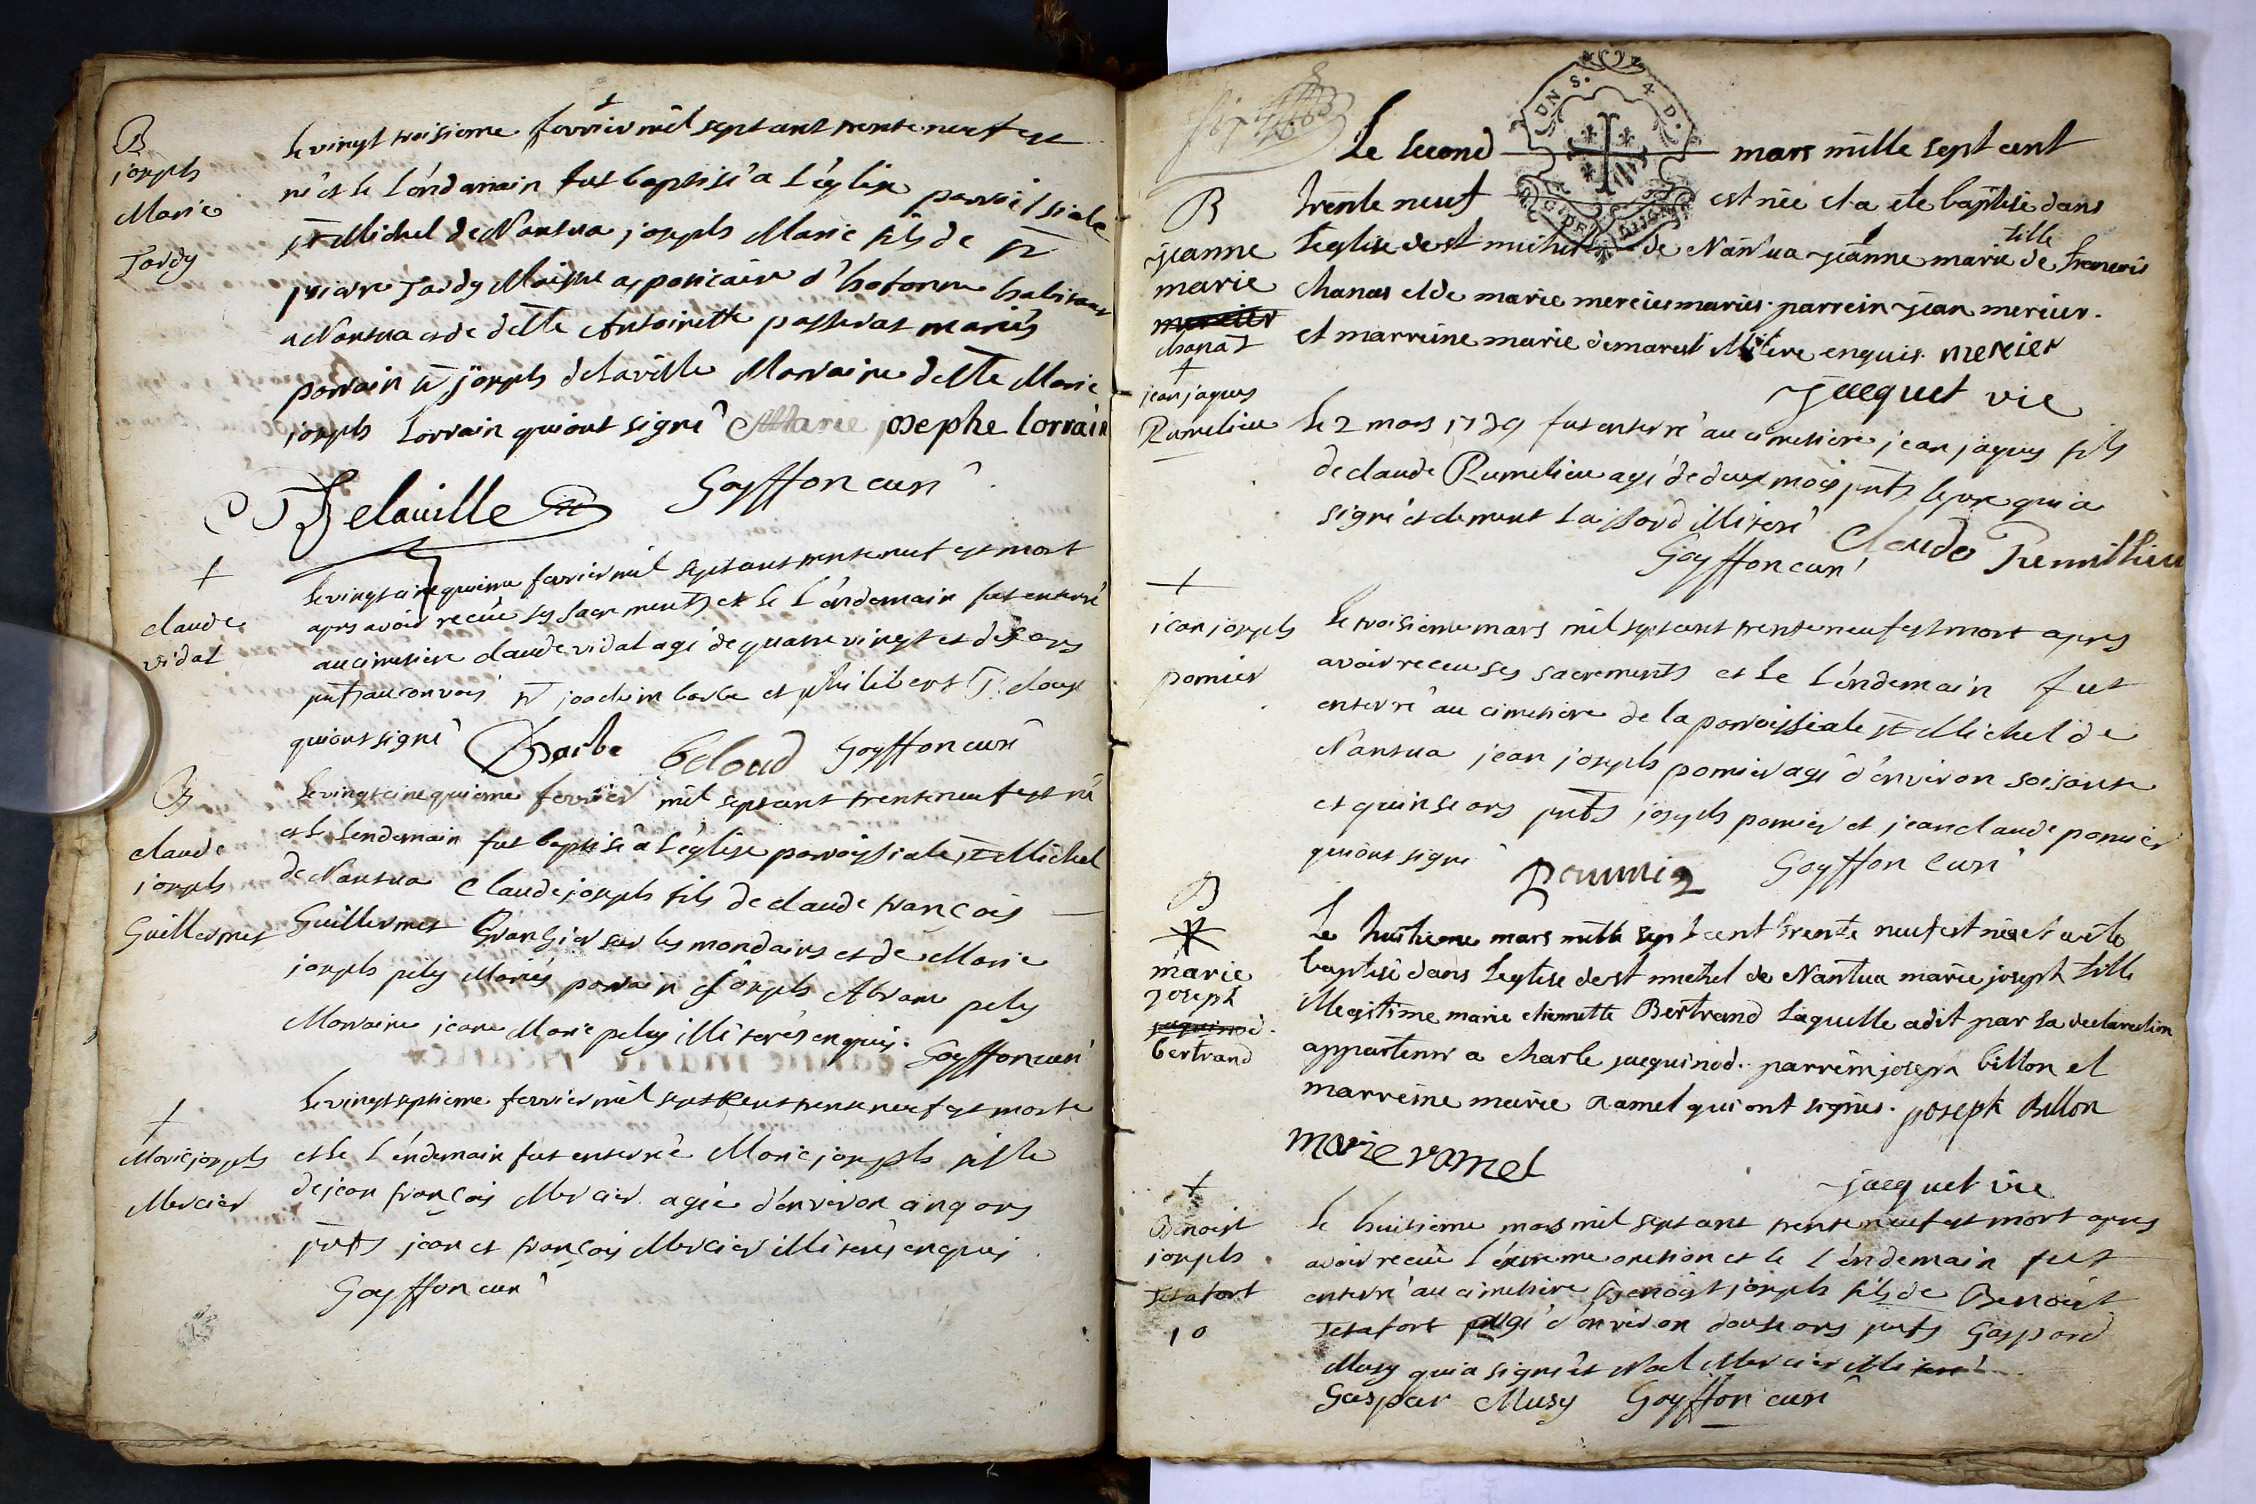 B
joseph
Marie
Tardy
le vingt troisieme fevrier mil sept cent trente neuf est
né et le l'endemain fut baptisé a l'église parroissiale
st Michel de Nantua joseph Marie fils de sr
pierre Tardy Maitre apoticaire d'hotonne habitant
a Nantua et de delle Antoinette passerat mariés
parrain sr joseph delaville Marraine delle Marie
joseph Lorrain qui ont signé Marie josephe lorrain
Delauille Goyffon curé
+
claude
vidal
le vingt cinquieme fevrier mil sept cent trente neuf est mort
apres avoir receu ses sacrements et le l'endemain fut enterré
au cimetiere claude vidal agé de quatre vingt et dix ans
pnts au convoi sr joachim barbe et philibert
qui ont signé Barbe beloud Goyffon curé
B
claude
joseph
Guillermet
le vingt cinquieme fevrier mil sept cent trente neuf est né
et le lendemain fut baptisé a l'église parroissiale st Michel
de Nantua Claude joseph fils de claude françois
Guillermet Grangier sur les mondairs et de Marie
joseph pely Mariés parrain joseph Abram pely
Marraine jeane Marie pely illiterés enquis. Goyffon curé
+
Marie joseph
Mercier
le vingt septieme fevrier mil sept cent trente neuf est morte
et le l'endemain fut enterrée Marie joseph fille
de jean françois Mercier agée d'environ cinq ans
pnts jean et françois Mercier illiterés enquis
Goyffon curé
Le second mars mille sept cent
B
jeanne
marie
mercier
chanal
trente neuf est née et a ete baptisé dans
l'eglise de st michel de Nantua jeanne marie fille de francois
chanas et de marie mercier mariés. parrein jean mercier.
et marreine marie demarest illitere enquis. merier
jacquet vic
+
jean jaques
Rumilieu
le 2 mars 1739 fut enterré au cimetiere jean jaques fils
de claude Rumilieu agé de deux mois pnts le pere qui a
signé et clement La illiteré
Goyffon curé Claude
+
jean joseph
pomier
le troisieme mars mil sept cent trente neuf est mort apres
avoir receu ses sacrements et le l'endemain fut
enterré au cimetiere de la parroissiale st Michel de
Nantua jean joseph pomier agé d'environ soisante
et quinse ans pnts joseph pomier et jean claude pomier
qui ont signé Goyffon curé
B
marie
joseph
jaquinod.
bertrand
Le huitieme mars mille sept cent trente neuf est née et a ete
baptisé dans l'eglise de st michel de Nantua marie joseph fille
illegitime marie etiennette Bertrand laquelle a dit par sa declaration
appartenir a charle jaequinod. parrein joseph billon et
marreine marie ramel qui ont signes. joseph Billon
marie ramel
jacquet vic
+
Benoist
joseph
Jetafort
10
le huitieme mars mil sept cent trente neuf est mort apres
avoir receu l'extreme onction et le l'endemain fut
enterré au cimetiere Benoist joseph fils de Benoist
Jetafort agé d'environ douse ans pnts Gaspard
Musy qui a signé et Noel Mercier illiteré
Gaspar Musy Goyffon curé